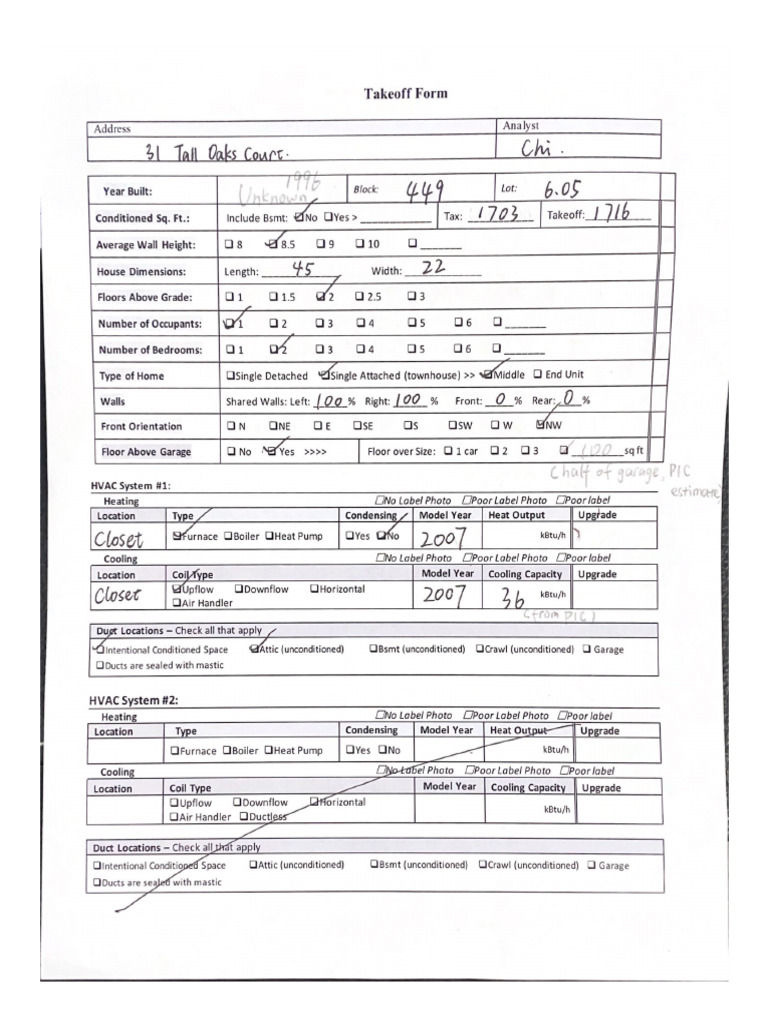 Takeoff Form
Address Analyst
31 Tall Oaks Court. Chi.
Year Built: Unknown 1996 Block: 449 Lot: 6.05
Conditioned Sq. Ft.: Include Bsmt: ☑No ☐Yes > Tax: 1703 Takeoff: 1716
Average Wall Height: ☐ 8 ☑ 8.5 ☐ 9 ☐ 10 ☐
House Dimensions: Length: 45 Width: 22
Floors Above Grade: ☐ 1 ☐ 1.5 ☑ 2 ☐ 2.5 ☐ 3
Number of Occupants: ☑ 1 ☐ 2 ☐ 3 ☐ 4 ☐ 5 ☐ 6 ☐
Number of Bedrooms: ☐ 1 ☑ 2 ☐ 3 ☐ 4 ☐ 5 ☐ 6 ☐
Type of Home ☐Single Detached ☑Single Attached (townhouse) >> ☑Middle ☐ End Unit
Walls Shared Walls: Left: 100 % Right: 100 % Front: 0 % Rear: 0 %
Front Orientation ☐ N ☐NE ☐ E ☐SE ☐S ☐SW ☐ W ☑NW
Floor Above Garage ☐ No ☑ Yes >>>> Floor over Size: ☐ 1 car ☐ 2 ☐ 3 ☐ sq ft
(half of garage, PIC
estimate)
HVAC System #1:
Heating ☐No Label Photo ☐Poor Label Photo ☐Poor label
Location Type Condensing Model Year Heat Output Upgrade
Closet ☑Furnace ☐Boiler ☐Heat Pump ☐Yes ☑No 2007 kBtu/h
Cooling ☐No Label Photo ☐Poor Label Photo ☐Poor label
Location Coil Type Model Year Cooling Capacity Upgrade
Closet ☑Upflow ☐Downflow ☐Horizontal 2007 36 kBtu/h
☐Air Handler
(from PIC)
Duct Locations – Check all that apply
☑Intentional Conditioned Space ☑Attic (unconditioned) ☐Bsmt (unconditioned) ☐Crawl (unconditioned) ☐ Garage
☐Ducts are sealed with mastic
HVAC System #2:
Heating ☐No Label Photo ☐Poor Label Photo ☐Poor label
Location Type Condensing Model Year Heat Output Upgrade
☐Furnace ☐Boiler ☐Heat Pump ☐Yes ☐No kBtu/h
Cooling ☐No Label Photo ☐Poor Label Photo ☐Poor label
Location Coil Type Model Year Cooling Capacity Upgrade
☐Upflow ☐Downflow ☐Horizontal kBtu/h
☐Air Handler ☐Ductless
Duct Locations – Check all that apply
☐Intentional Conditioned Space ☐Attic (unconditioned) ☐Bsmt (unconditioned) ☐Crawl (unconditioned) ☐ Garage
☐Ducts are sealed with mastic